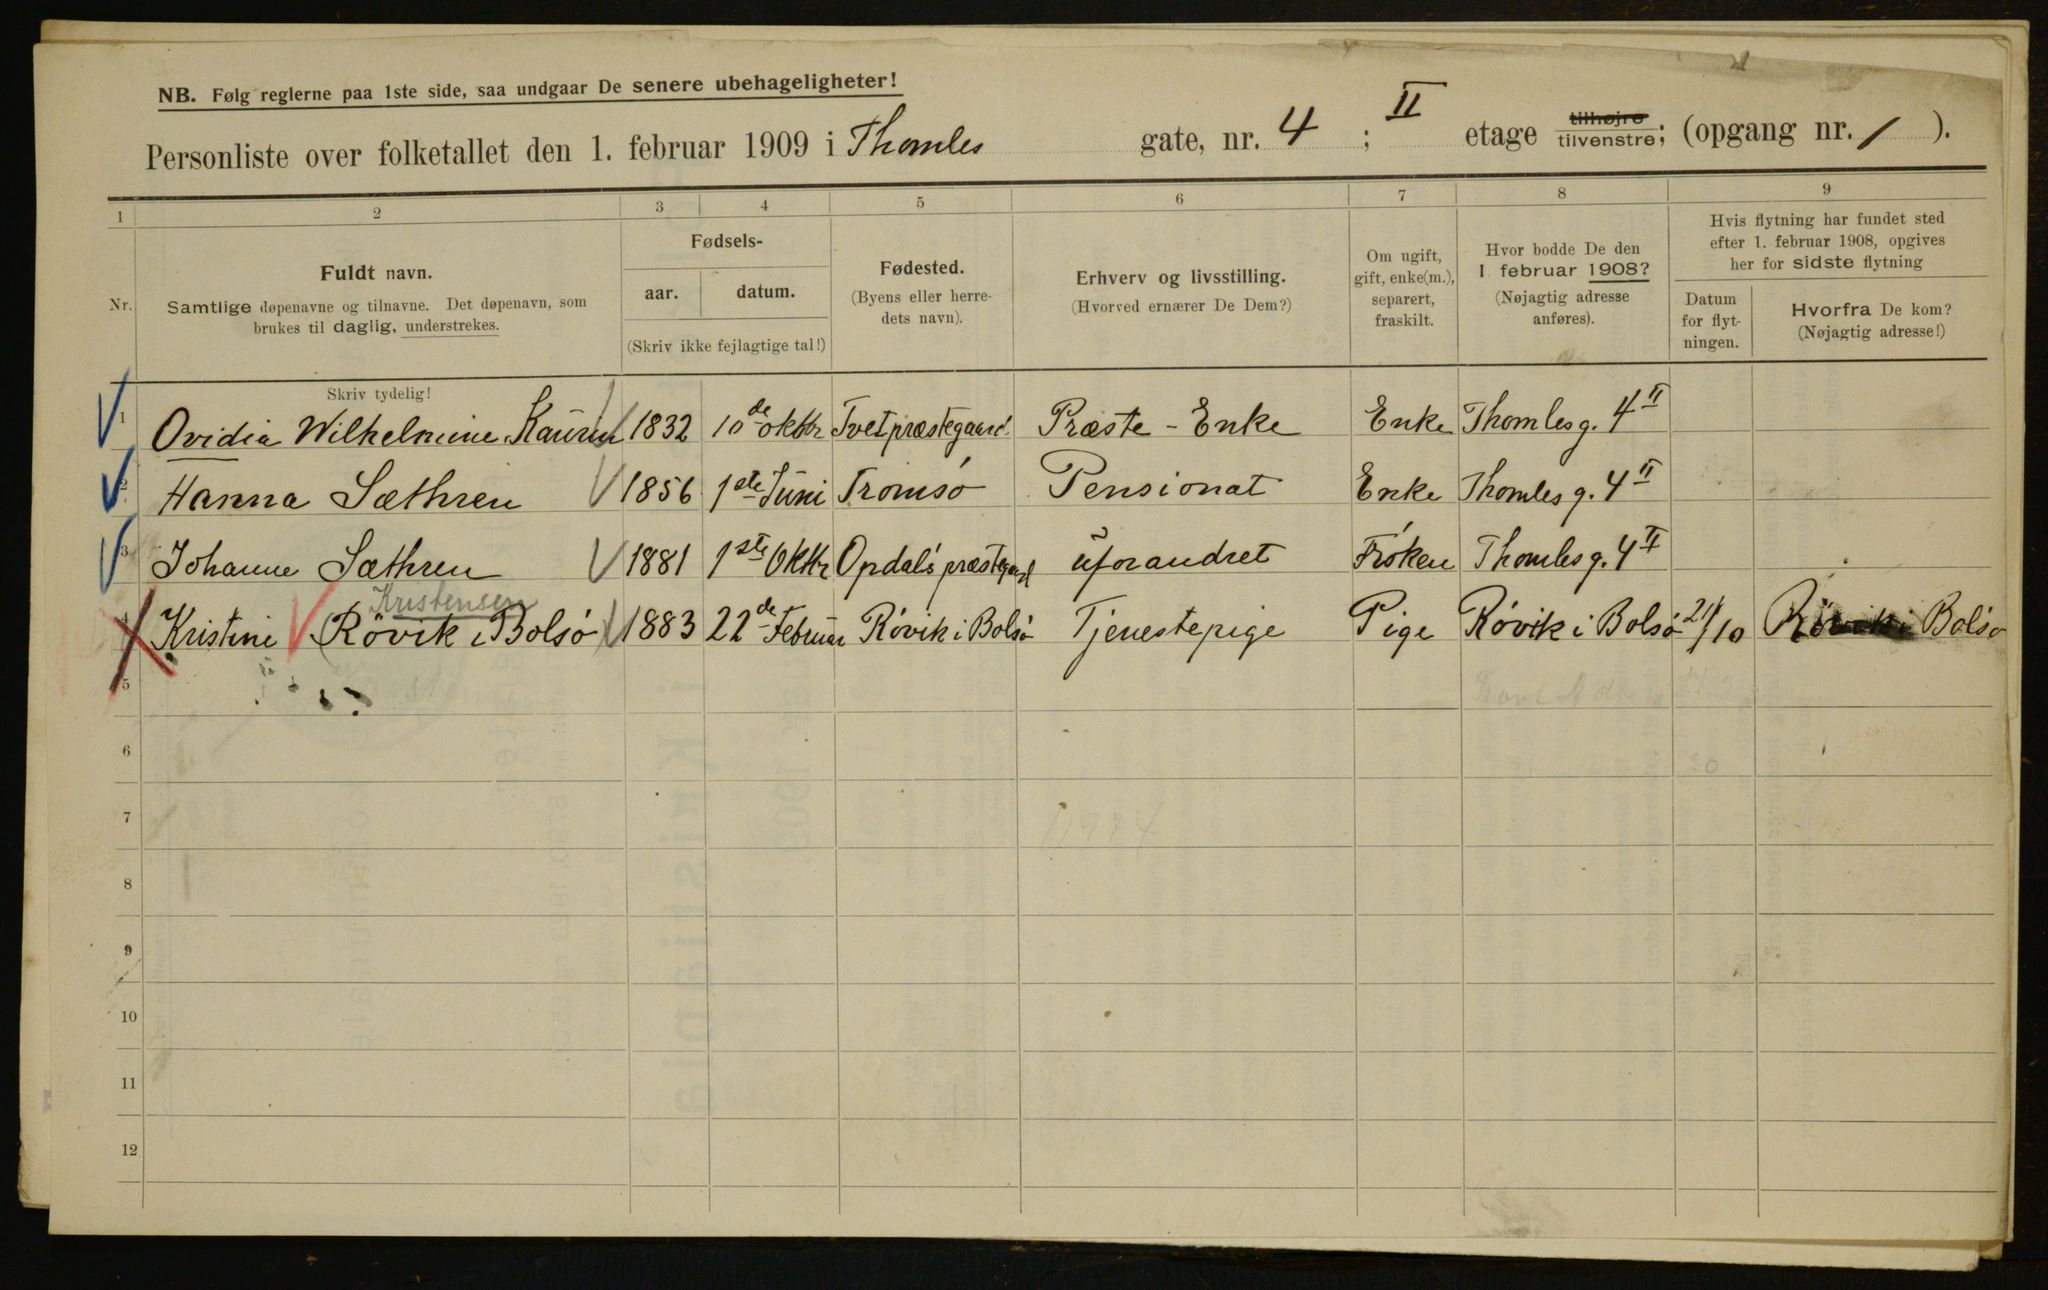 NB. Følg reglerne paa 1ste side, saa undgaar De senere ubehageligheter!
Personliste over folketallet den 1. februar 1909 i Thomles gate, nr. 4 ; II etage tilhøjre tilvenstre; (opgang nr. 1 ).
1 2 3 4 5 6 7 8 9
Nr.
Fuldt navn.
Samtlige døpenavne og tilnavne. Det døpenavn, som
brukes til daglig, understrekes.
Fødsels-
aar. datum.
(Skriv ikke fejlagtige tal!)
Fødested.
(Byens eller herre-
dets navn).
Erhverv og livsstilling.
(Hvorved ernærer De Dem?)
Om ugift,
gift, enke(m.),
separert,
fraskilt.
Hvor bodde De den
1 februar 1908?
(Nøjagtig adresse
anføres).
Hvis flytning har fundet sted
efter 1. februar 1908, opgives
her for sidste flytning
Datum
for flyt-
ningen.
Hvorfra De kom?
(Nøjagtig adresse!)
Skriv tydelig!
1 Ovidia Wilhelmine Kaurin 1832 10de oktbr Tvet præstegaard. Præste - Enke Enke Thomles g. 4 II
2 Hanna Sæthren 1856 1ste Juni Tromsö Pensionat Enke Thomles g. 4 II
3 Johanne Sæthren 1881 1ste Oktbr Opdals præstegaard uforandret Fröken Thomles g. 4 II
Kristensen
4 Kristine (Rövik i Bolsö) 1883 22de Februar Rövik i Bolsö Tjenestepige Pige Rövik i Bolsö 21/10 Rövik i Bolsö
5
6
7
8
9
10
11
12